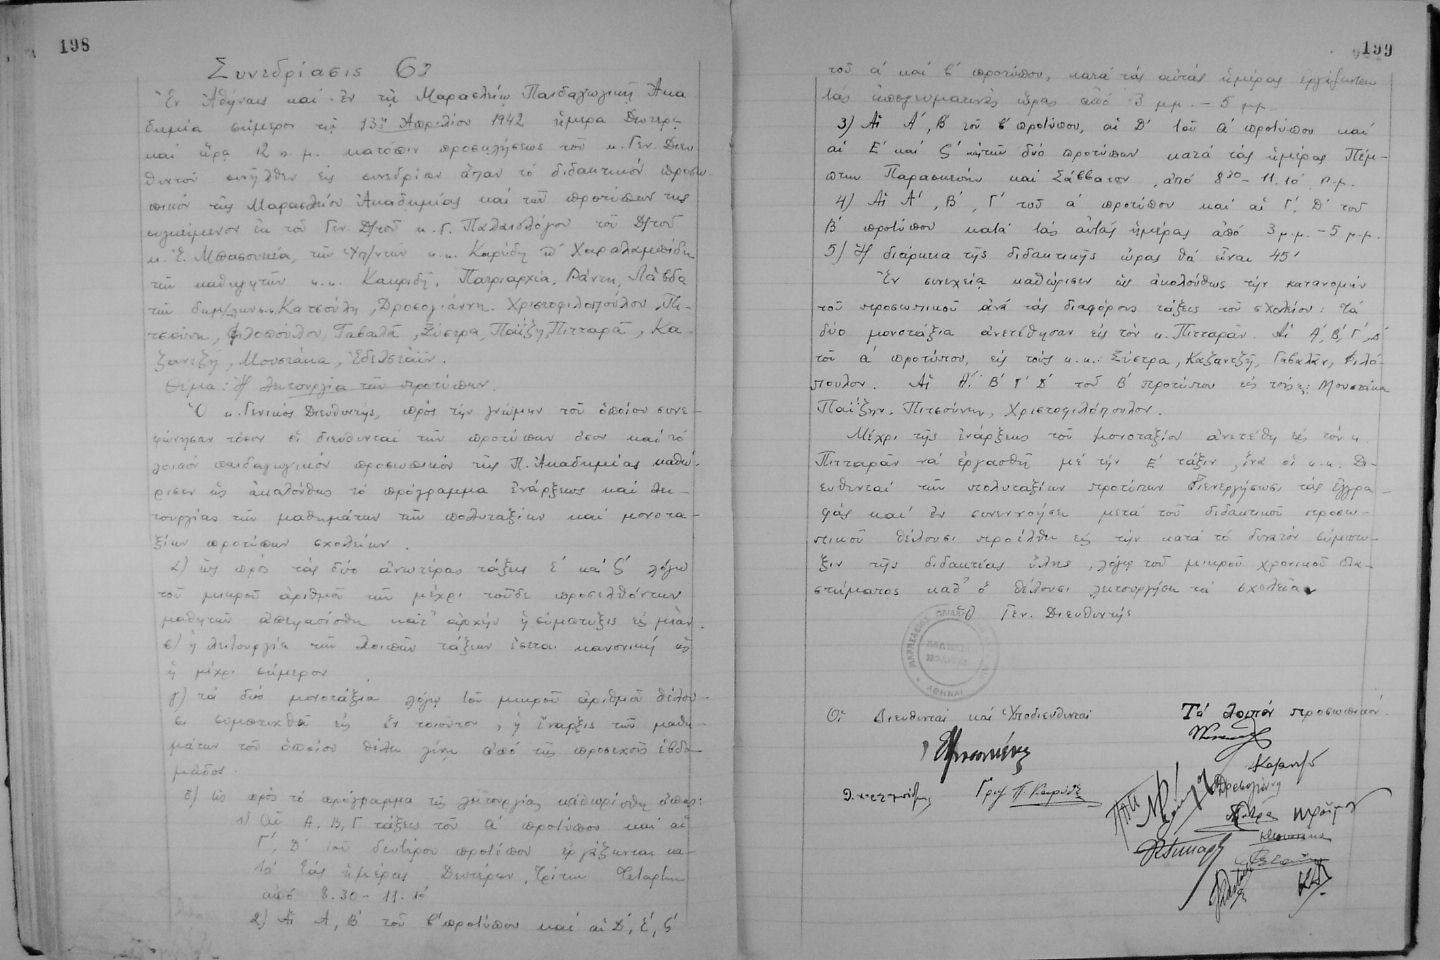 198
Συνεδρίασις 63
Ἐν Ἀθήναις καὶ ἐν τῇ Μαρασλείῳ Παιδαγωγικῇ Ἀκα
δημίᾳ σήμερον τῇ 13ῃ Ἀπριλίου 1942 ἡμέρᾳ Δευτέρᾳ
καὶ ὥρᾳ 12 π.μ. κατόπιν προσκλήσεως τοῦ κ. Γεν. Διευ
θυντοῦ συνῆλθεν εἰς συνεδρίαν ἅπαν τὸ διδακτικὸν προσω
πικὸν τῆς Μαρασλείου Ἀκαδημίας καὶ τῶν προτύπων της
συγκείμενον ἐκ τοῦ Γεν. Δ/τοῦ κ. Γ. Παλαιολόγου τοῦ Δ/τοῦ
κ. Ε. Μπασουκέα, τῶν Ὑπ/ντῶν κ.κ. Καρύδη Χαραλαμπίδη
τῶν καθηγητῶν κ.κ. Κακριδῆ, Πατριαρχέα, Ράντη, Λάβδα
τῶν δημ/λων κ.κ. Κατσούλη, Δροσογιάννη, Χριστοφιλοπούλου, Πι-
τσούνη, Φιλοπούλου, Γαβαλᾶ, Σύστρα, Παΐζη, Πιτταρᾶ, Κα-
ζαντζῆ, Μουστάκα,
Θέμα: Ἡ λειτουργία τῶν προτύπων.
Ὁ κ. Γενικὸς Διευθυντής, πρὸς τὴν γνώμην τοῦ ὁποίου συνε-
φώνησαν τόσον οἱ διευθυνταὶ τῶν προτύπων ὅσον καὶ τὸ
λοιπὸν παιδαγωγικὸν προσωπικὸν τῆς Π. Ἀκαδημίας καθώ-
ρισεν ὡς ἀκολούθως τὸ πρόγραμμα ἐνάρξεως καὶ λει-
τουργίας τῶν μαθημάτων τῶν πολυταξίων καὶ μονοτα-
ξίων προτύπων σχολείων.
α) ὡς πρὸς τὰς δύο ἀνωτέρας τάξεις Ε΄ καὶ Ϛ΄ λόγῳ
τοῦ μικροῦ ἀριθμοῦ τῶν μέχρι τοῦδε προσελθόντων
μαθητῶν ἀπεφασίσθη κατ' ἀρχὴν ἡ σύμπτυξις εἰς μίαν.
β) ἡ λειτουργία τῶν λοιπῶν τάξεων ἔσεται κανονικὴ ὡς
ἡ μέχρι σήμερον
γ) τὰ δύο μονοτάξια λόγῳ τοῦ μικροῦ ἀριθμοῦ θέλου-
σι συμπτυχθῆ εἰς ἓν τοιοῦτον, ἡ ἔναρξις τῶν μαθη-
μάτων τοῦ ὁποίου θέλει γίνῃ ἀπὸ τῆς προσεχοῦς ἑβδο-
μάδος.
δ) ὡς πρὸς τὸ πρόγραμμα τῆς λειτουργίας καθωρίσθη ὅπως:
1) Αἱ Α, Β, Γ τάξεις τοῦ α΄ προτύπου καὶ αἱ
Γ΄, Δ΄ τοῦ δευτέρου προτύπου ἐργάζωνται κα-
τὰ τὰς ἡμέρας Δευτέραν, Τρίτην Τετάρτην
ἀπὸ 8.30 - 11.10
2) Αἱ Α, Β΄ τοῦ β΄ προτύπου καὶ αἱ Δ΄, Ε΄, Ϛ΄
199
τοῦ α΄ καὶ β΄ προτύπου, κατὰ τὰς αὐτὰς ἡμέρας ἐργάζωνται
τὰς ἀπογευματινὰς ὥρας ἀπὸ 3 μ.μ. - 5 μ.μ.
3) Αἱ Α΄, Β΄ τοῦ β΄ προτύπου, αἱ Δ΄ τοῦ α΄ προτύπου καὶ
αἱ Ε΄ καὶ Ϛ΄ τῶν δύο προτύπων κατὰ τὰς ἡμέρας Πέμ-
πτην Παρασκευὴν καὶ Σάββατον, ἀπὸ 8³⁰ - 11.10 π.μ.
4) Αἱ Α΄, Β΄, Γ΄ τοῦ α΄ προτύπου καὶ αἱ Γ΄, Δ΄ τοῦ
Β΄ προτύπου κατὰ τὰς αὐτὰς ἡμέρας ἀπὸ 3 μ.μ. - 5 μ.μ.
5) Ἡ διάρκεια τῆς διδακτικῆς ὥρας θὰ εἶναι 45΄
Ἐν συνεχείᾳ καθώρισεν ὡς ἀκολούθως τὴν κατανομὴν
τοῦ προσωπικοῦ ἀνὰ τὰς διαφόρους τάξεις τοῦ σχολείου: Τὰ
δύο μονοτάξια ἀνετέθησαν εἰς τὸν κ. Πιτταρᾶν. Αἱ Α΄, Β΄, Γ΄, Δ΄
τοῦ α΄ προτύπου, εἰς τοὺς κ.κ.: Σύστρα, Καζαντζῆ, Γαβαλᾶν, Φιλό-
πουλον. Αἱ Α΄ Β΄ Γ΄ Δ΄ τοῦ Β΄ προτύπου εἰς τοὺς: Μουστάκα
Παΐζην, Πιτσούνην, Χριστοφιλόπουλον.
Μέχρι τῆς ἐνάρξεως τοῦ μονοταξίου ἀνετέθη εἰς τὸν κ.
Πιτταρᾶν νὰ ἐργασθῇ μὲ τὴν Ε΄ τάξιν, ἵνα οἱ κ.κ. Δι-
ευθυνταὶ τῶν πολυταξίων προτύπων διενεργήσωσι τὰς ἐγγρα-
φὰς καὶ ἐν συνεννοήσει μετὰ τοῦ διδακτικοῦ προσω-
πικοῦ θέλουσι προέλθει εἰς τὴν κατὰ τὸ δυνατὸν σύμπτυ-
ξιν τῆς διδακτέας ὕλης, λόγῳ τοῦ μικροῦ χρονικοῦ δια-
στήματος καθ' ὃ θέλουσι λειτουργήσει τὰ σχολεῖα.
Ὁ Γεν. Διευθυντής
ΑΘΗΝΑΙ
Οἱ Διευθυνταὶ καὶ Ὑποδιευθυνταὶ
Τὸ λοιπὸν προσωπικόν